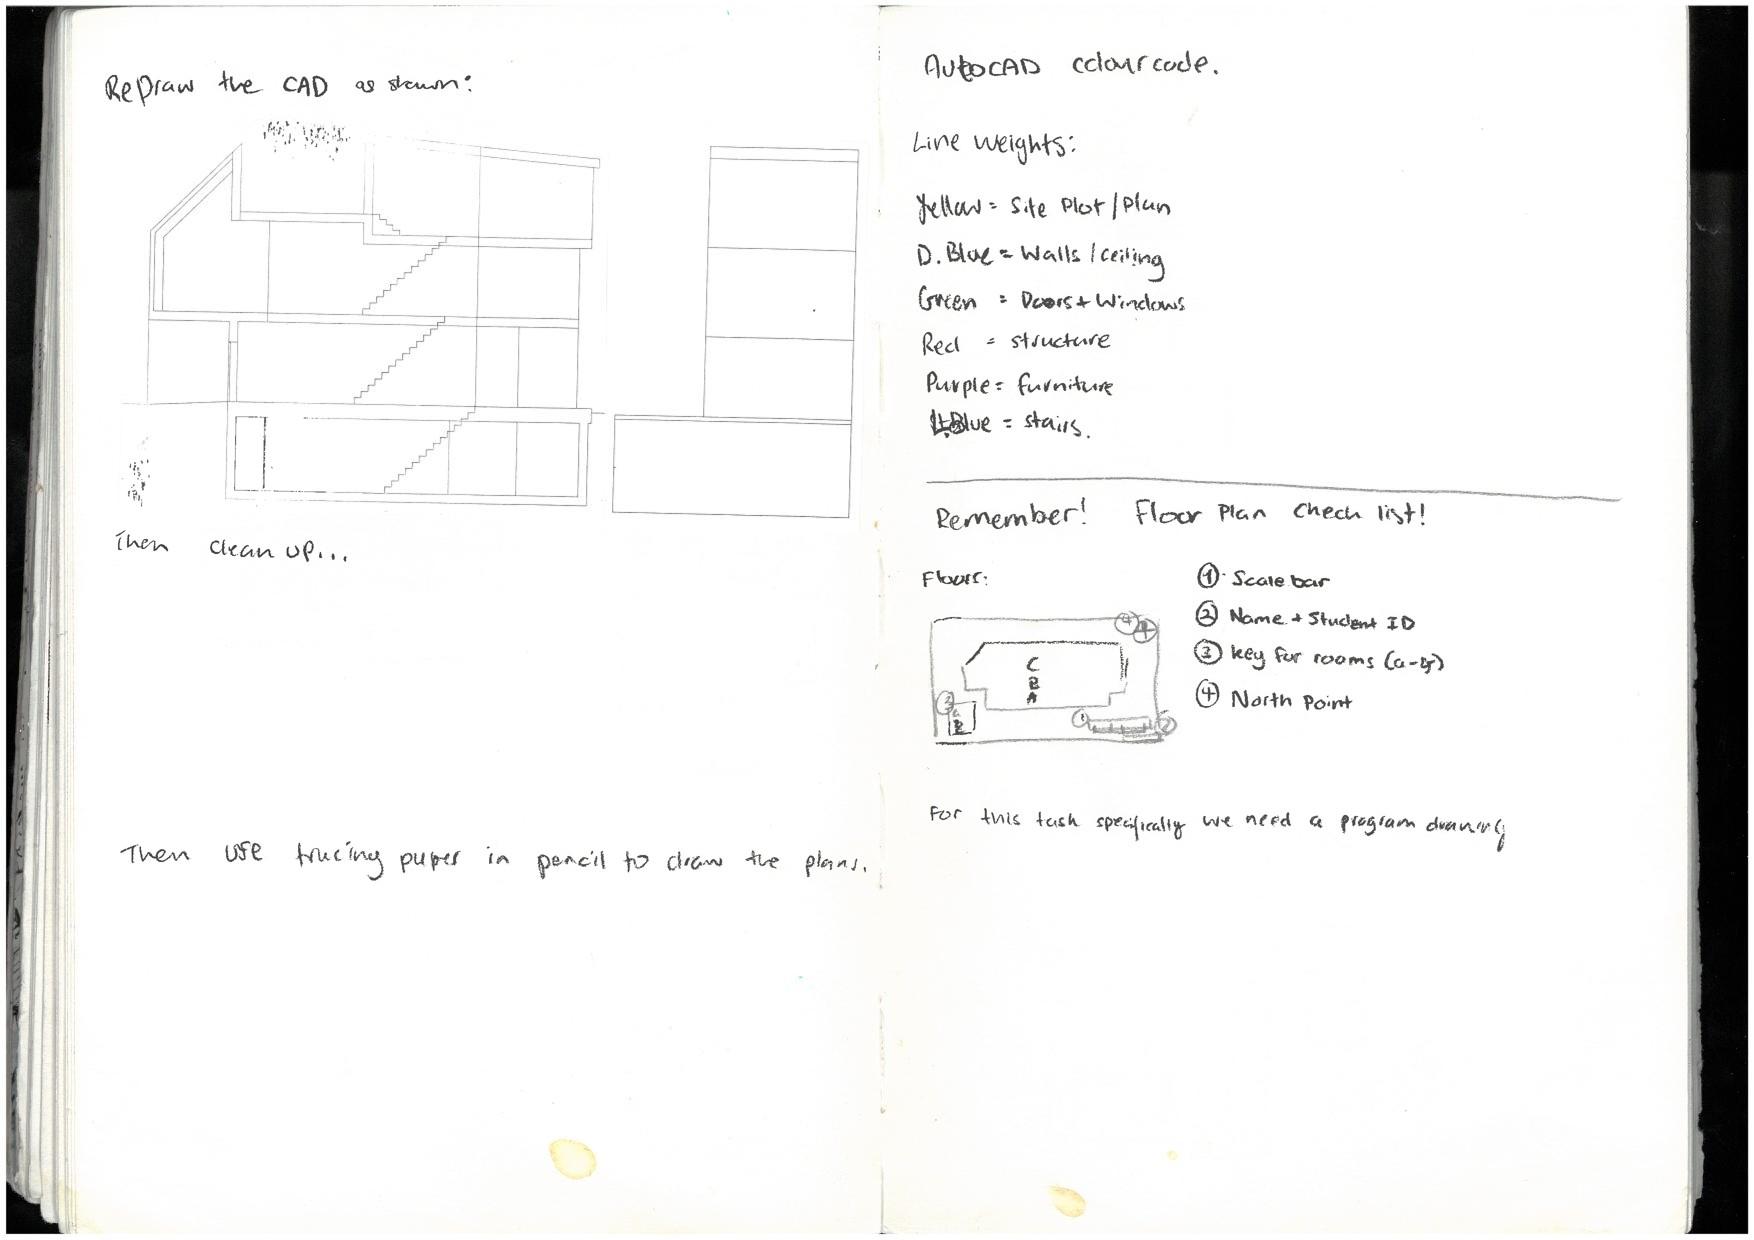 RePraw the CAD as shown:
Then clean up...
Then use tracing paper in pencil to draw the plans.
AutoCAD colour code.
Line weights:
Yellow = Site Plot / Plan
D. Blue = Walls / ceiling
Green = Doors + Windows
Red = structure
Purple = furniture
L.Blue = stairs.
Remember! Floor Plan Check list!
Floors:
① Scale bar
② Name + Student ID
③ key for rooms
④ North Point
4
C
B
A
3
1
2
For this task specifically we need a program drawing